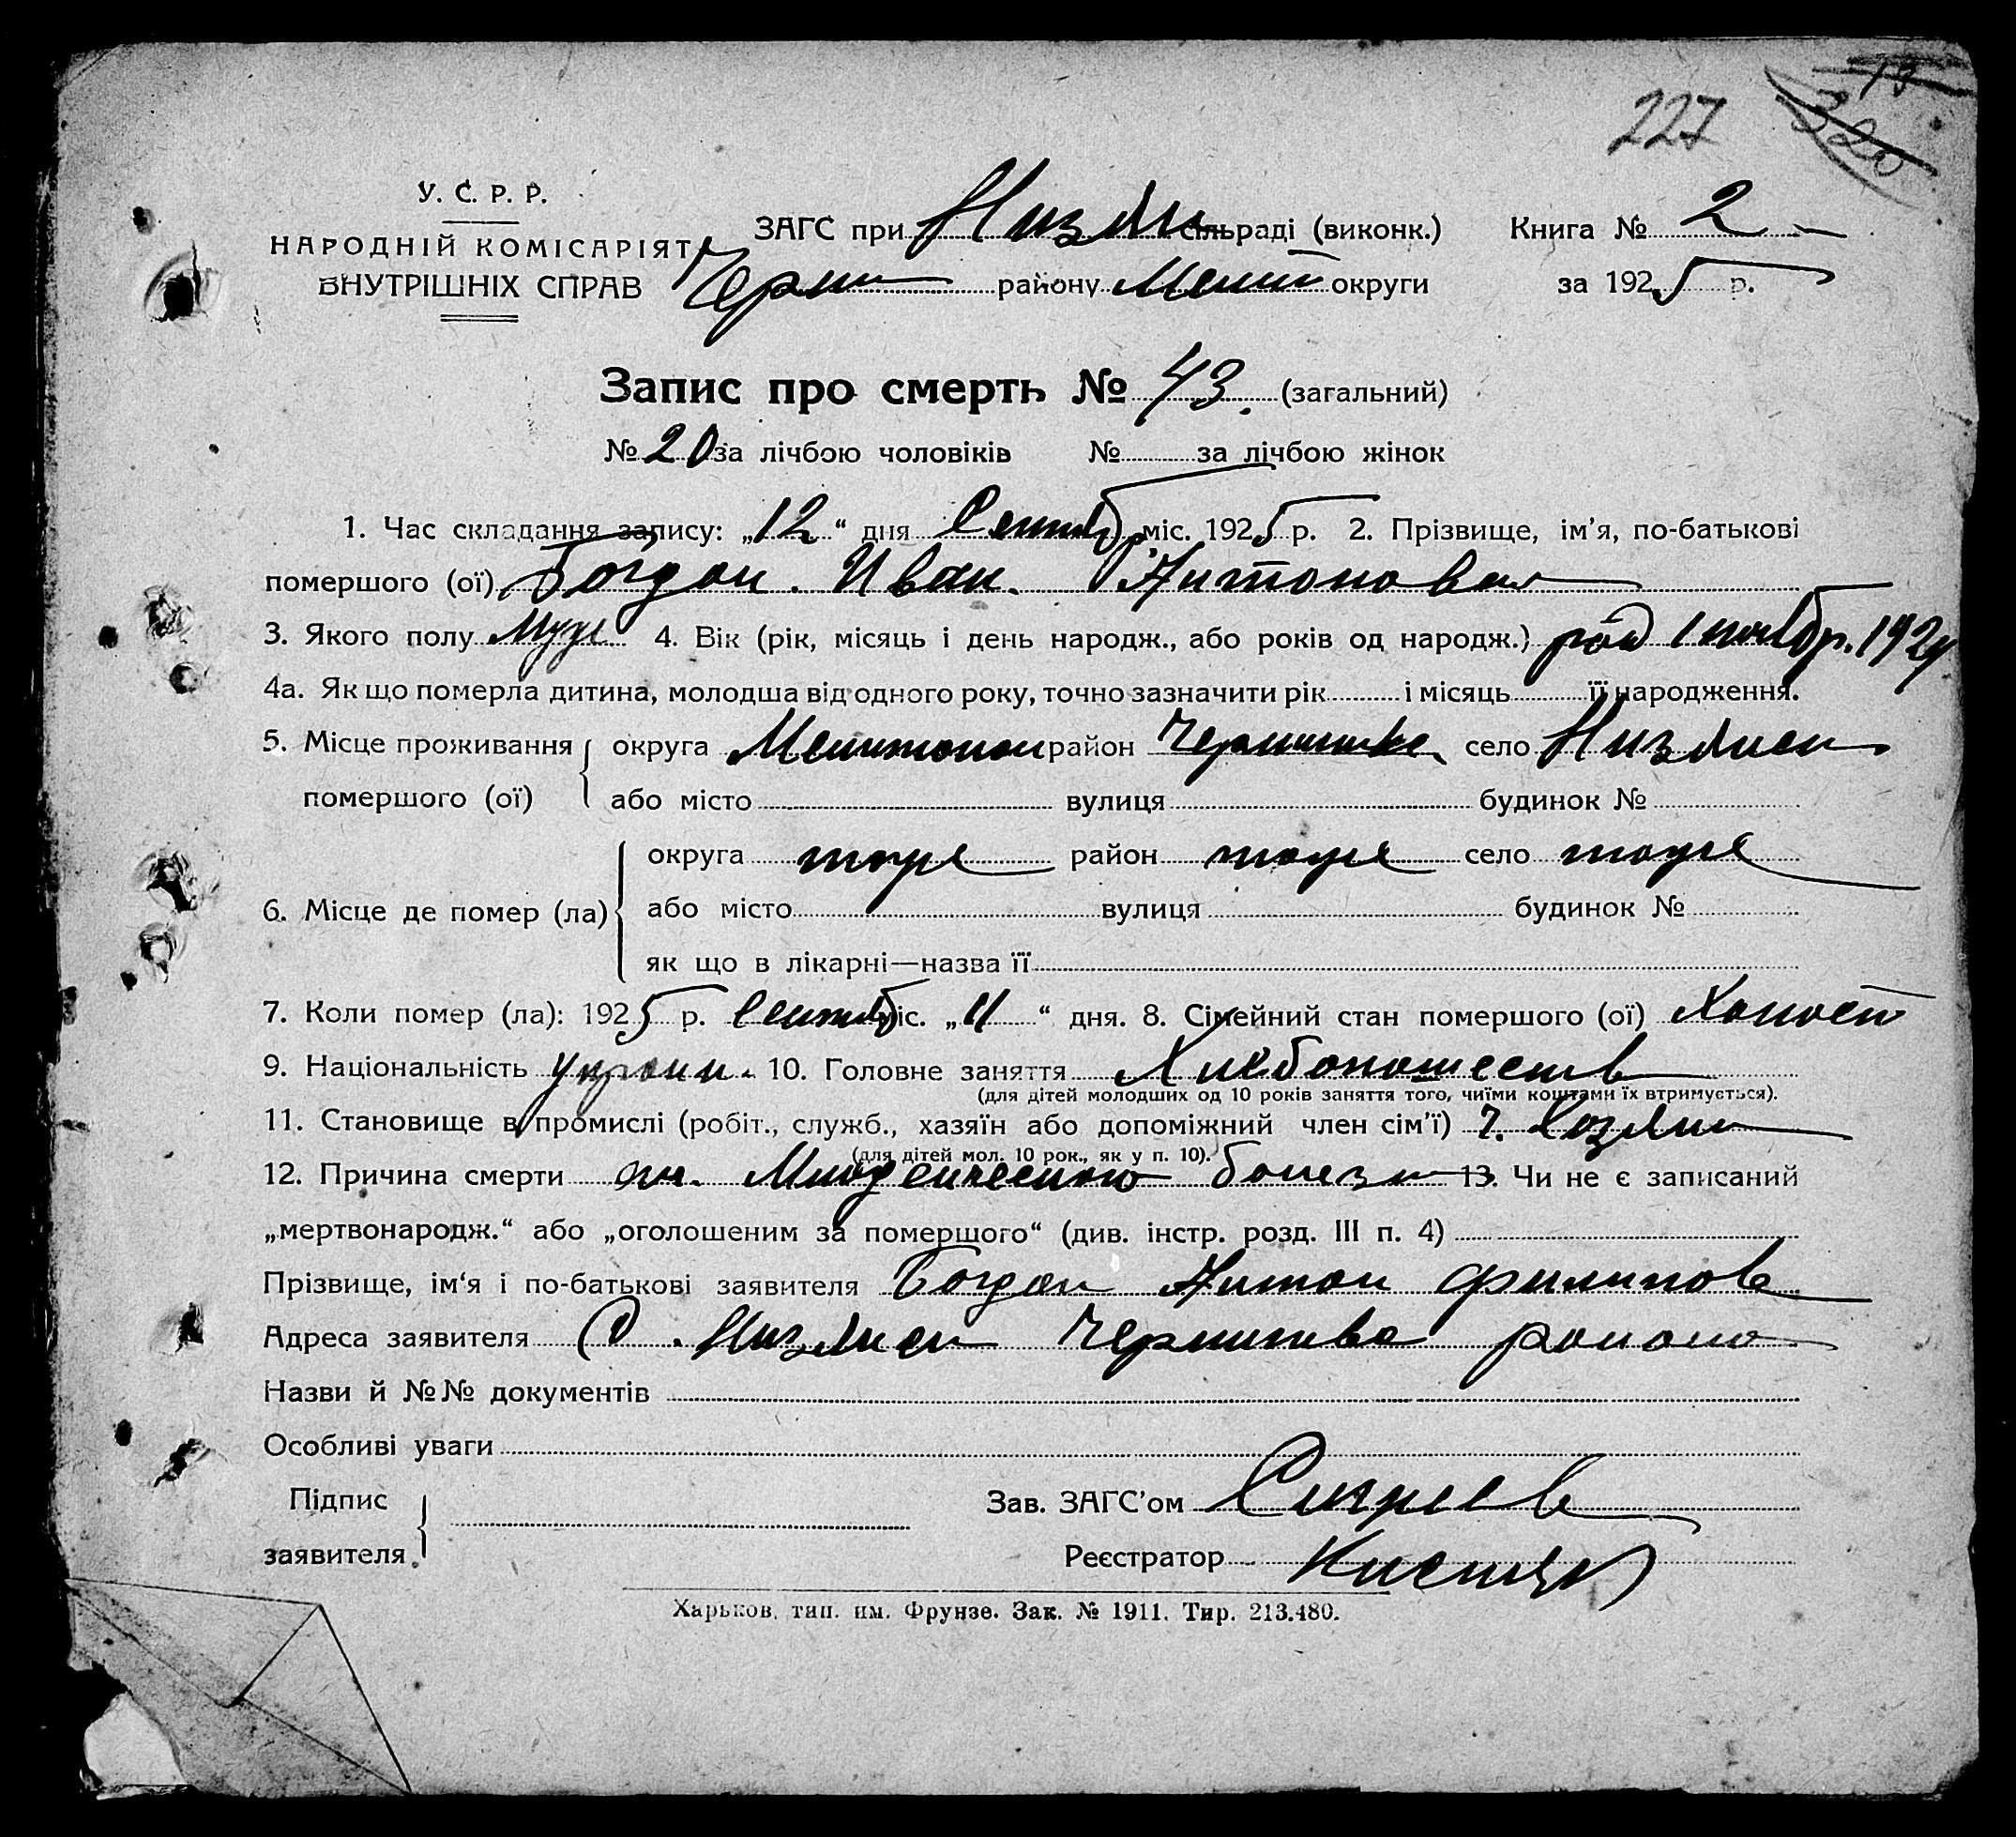 227
У. С. Р. Р.
НАРОДНІЙ КОМІСАРІЯТ
ВНУТРІШНІХ СПРАВ
ЗАГС при Низ сільраді (виконк.) Книга № 2
Черн району Мелит округи за 1925 р.
Запис про смерть № 43. (загальний)
№ 20 за лічбою чоловіків № за лічбою жінок
1. Час складання запису: „12“ дня Сентябр міс. 1925 р. 2. Прізвище, ім’я, по-батькові
помершого (ої) Богдан. Иван. Антонович
3. Якого полу Муж 4. Вік (рік, місяць і день народж., або років од народж.) род 1 ноябр. 1924
4а. Як що померла дитина, молодша від одного року, точно зазначити рік і місяць її народження.
5. Місце проживання округа Мелитопол район село
помершого (ої) або місто вулиця будинок №
округа тоже район тоже село тоже
6. Місце де помер (ла) або місто вулиця будинок №
як що в лікарні—назва її
7. Коли помер (ла): 1925 р. Сентяб міс. „11“ дня. 8. Сімейний стан помершого (ої) Холост
9. Національність украин. 10. Головне заняття Хлебопашеств
(для дітей молодших од 10 років заняття того, чиїми коштами їх втримується).
11. Становище в промислі (робіт., служб., хазяїн або допоміжний член сім’ї) Хозяин
(для дітей мол. 10 рок., як у п. 10).
12. Причина смерти от. Младенческого болезн 13. Чи не є записаний
„мертвонародж.“ або „оголошеним за помершого“ (див. інстр. розд. III п. 4)
Прізвище, ім‘я і по-батькові заявителя Богдан Антон Филипов
Адреса заявителя С. район
Назви й №№ документів
Особливі уваги
Підпис Зав. ЗАГС’ом
заявителя Реєстратор
Харьков, тип. им. Фрунзе. Зак. № 1911. Тир. 213.480.